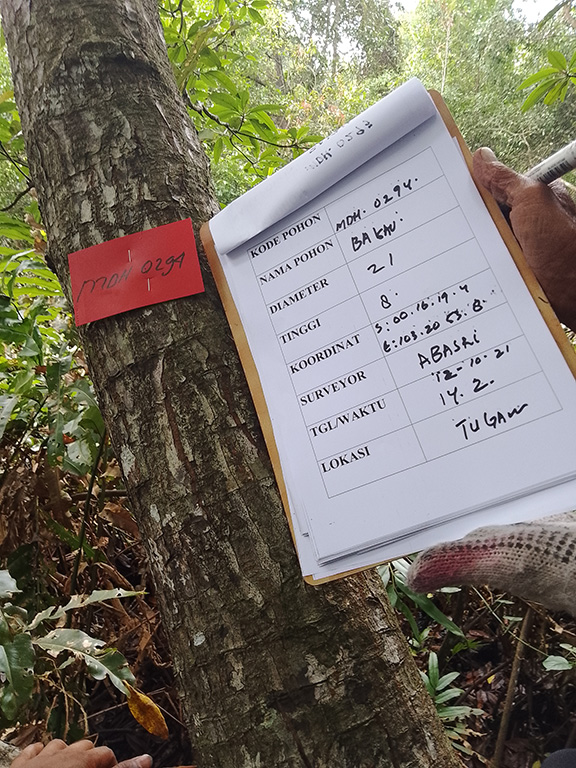 MDH 0294
KODE POHON MDH. 0294.
NAMA POHON BAKAU
DIAMETER 21
TINGGI 8.
KOORDINAT S:00.16.19.4
E:103.20.53.8.
SURVEYOR ABASRI
TGL/WAKTU 12-10-21
14.2.
LOKASI TUGAU